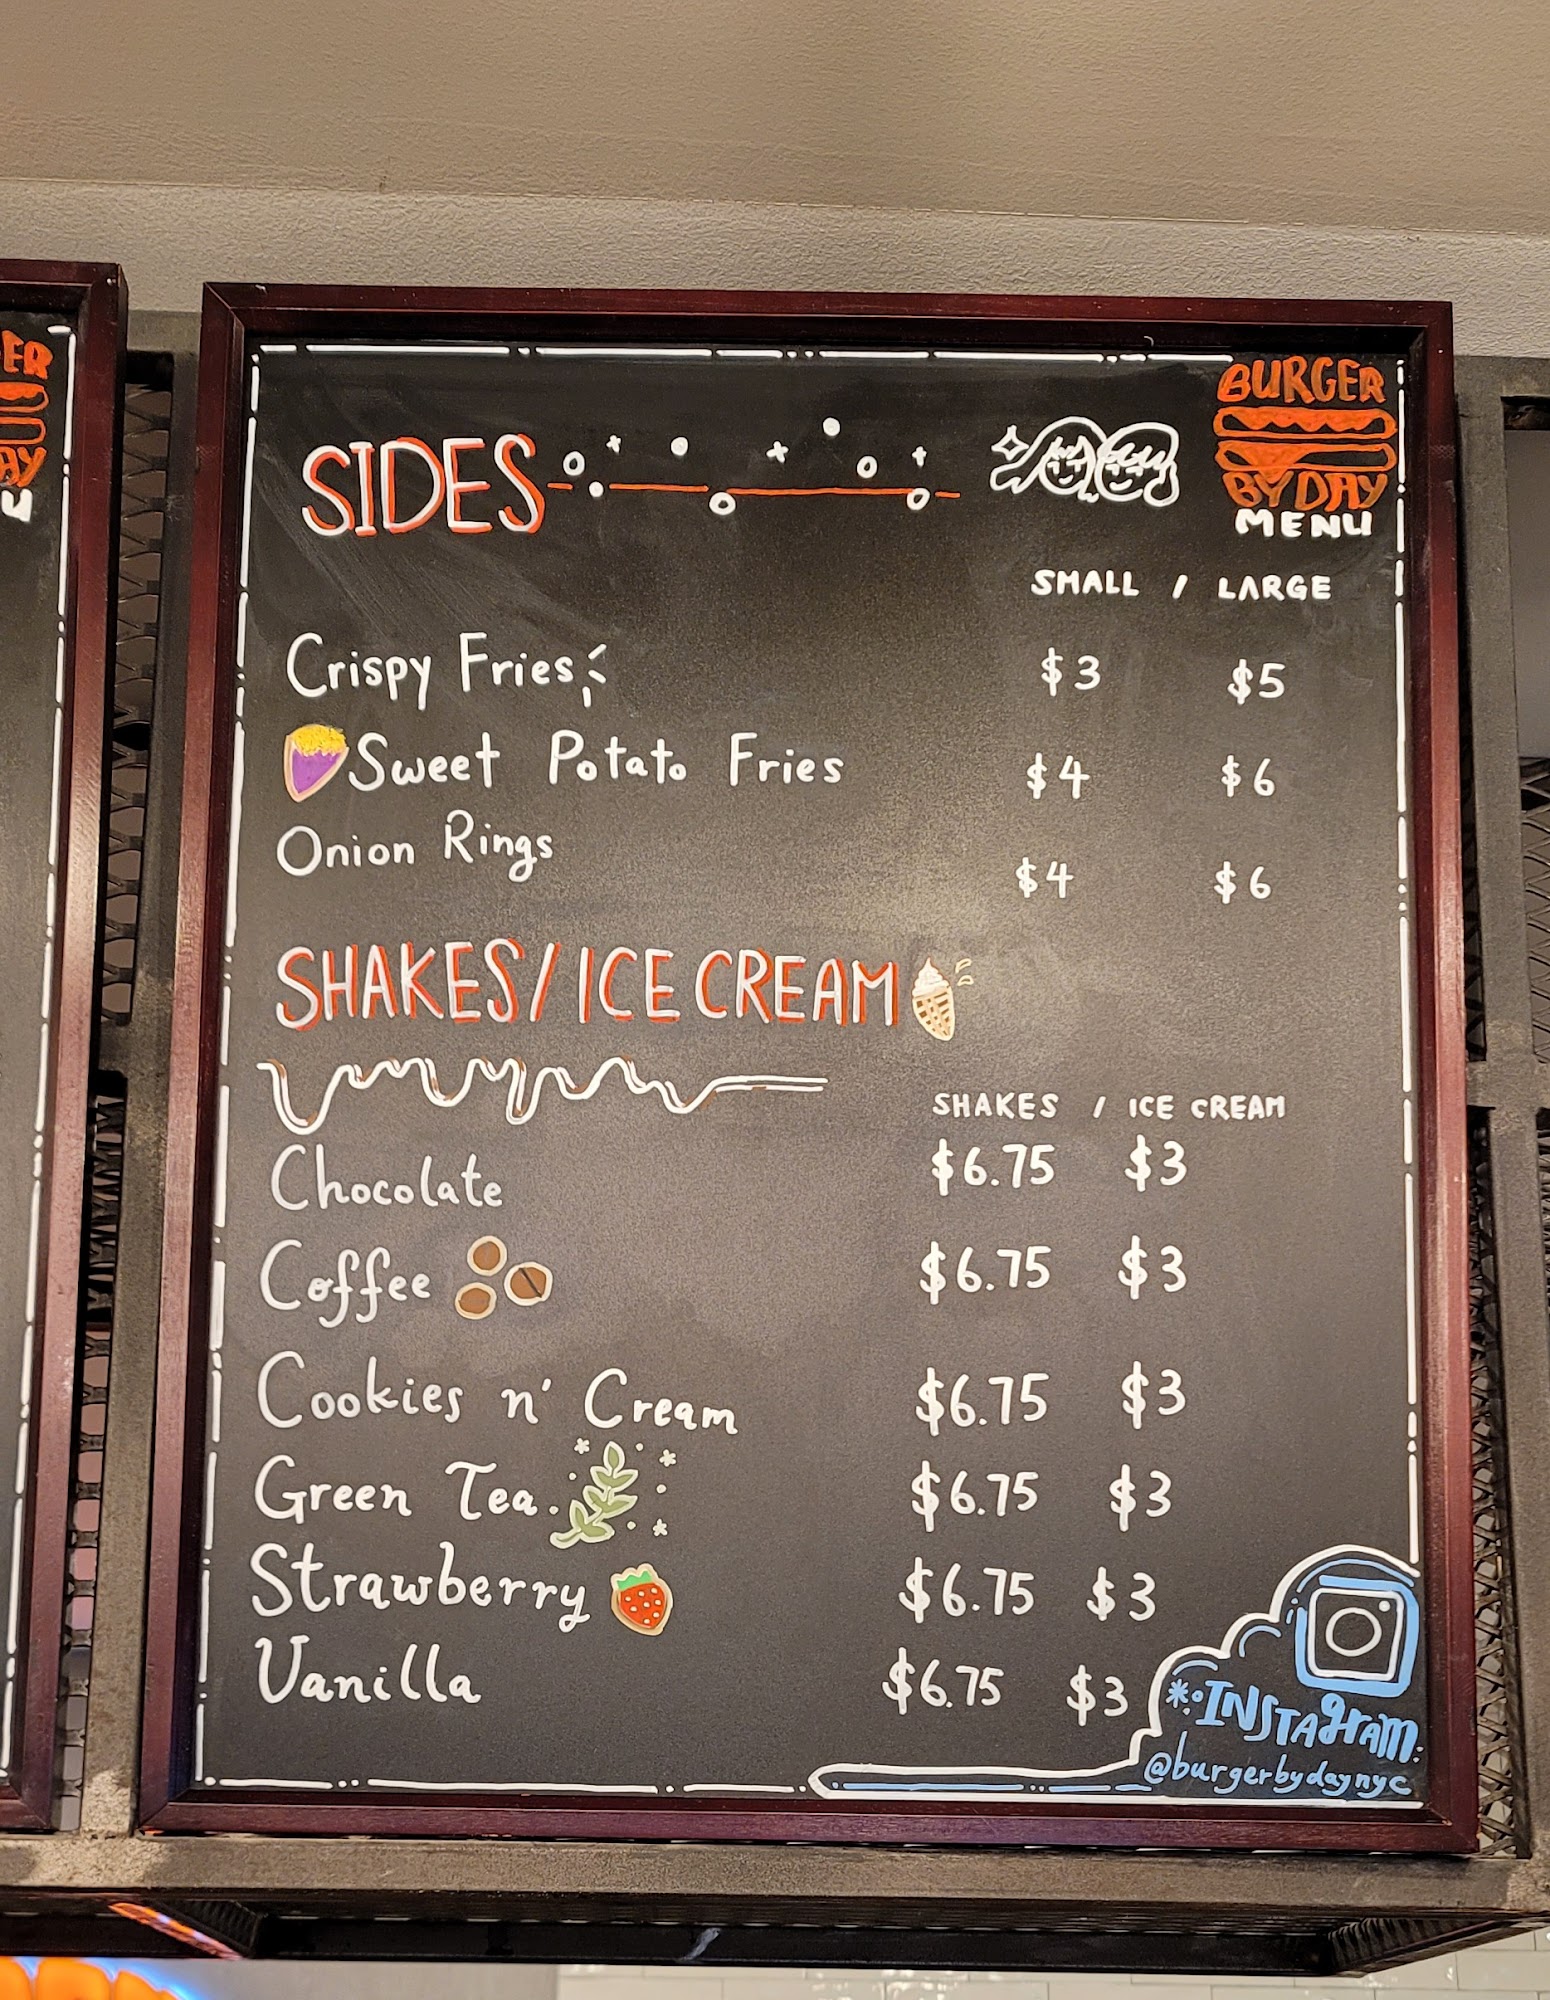 ER
AY
U
BURGER
BY DAY
MENU
SIDES
SMALL / LARGE
Crispy Fries $3 $5
Sweet Potato Fries $4 $6
Onion Rings $4 $6
SHAKES/ICE CREAM
SHAKES / ICE CREAM
Chocolate $6.75 $3
Coffee $6.75 $3
Cookies n' Cream $6.75 $3
Green Tea $6.75 $3
Strawberry $6.75 $3
Vanilla $6.75 $3
INSTAgram
@burgerbydaynyc